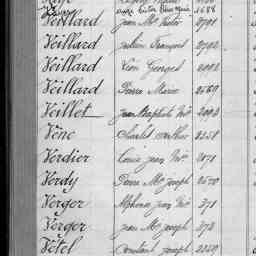 Veillard Jean Mie Victor 2791
Veillard Julien François 2792
Veillard Léon Georges 2002
Veillard Pierre Marie 2589
Veillet Jean Baptiste Mie 2093
Vène Charles Arthur 2258
Verdier Louis Jean Mie 2071
Verdy Pierre Mie Joseph 2570
Verger Alphonse Jean Mie 271
Verger Jean Mie Joseph 272
Vétel Constant Joseph 2259